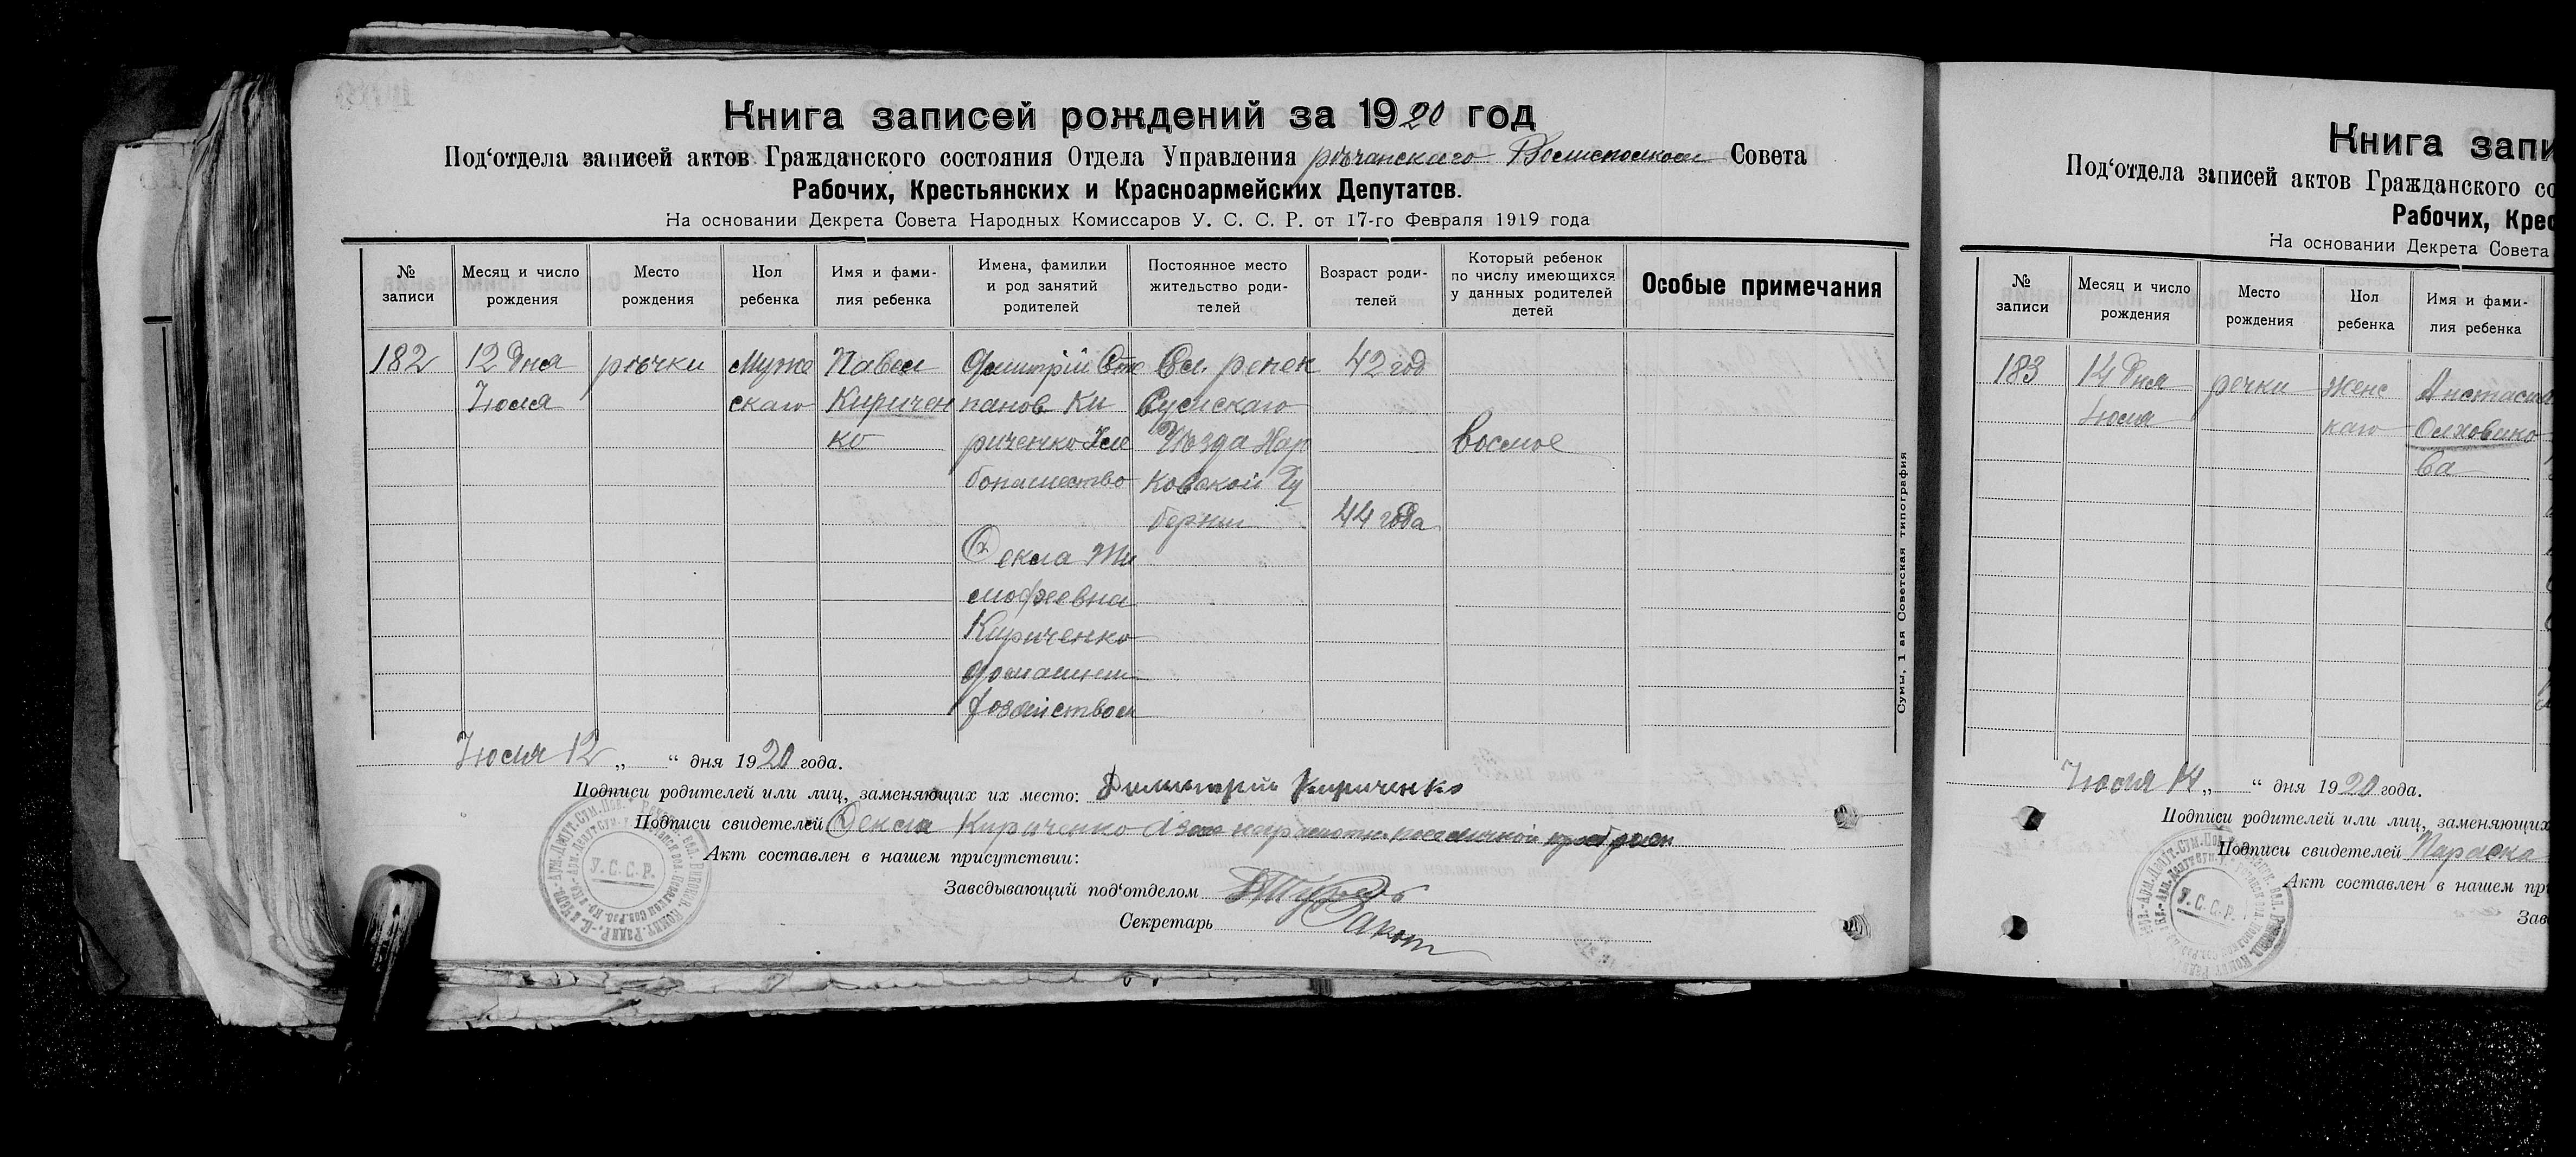 Книга записей рождений за 1920 год
Под‘отдела записей актов Гражданского состояния Отдела Управления речанскаго Волисполком Совета
Рабочих, Крестьянских и Красноармейских Депутатов.
На основании Декрета Совета Народных Комиссаров У. С. С. Р. от 17-го Февраля 1919 года
№ записи
Месяц и число рождения
Место рождения
Пол ребенка
Имя и фами-
лия ребенка
Имена, фамилии
и род занятий
родителей
Постоянное место
жительство роди-
телей
Возраст роди-
телей
Который ребенок
по числу имеющихся
у данных родителей
детей
Особые примечания
182
12 Дня
Июля
рѣчки
Муже
скаго
Павел
Киричен
ко
Дмитрій Сте
панов Ки
риченко Хле
бопашество
Фекла Ти
мофеевна
Кириченко
домашнем
хозяйством
Сел. речек
Сумскаго
Уезда Хар
ковской Гу
бернии
42 год
44 года
восмое
Сумы, 1 ая Советская типография
Июля 12 „ “ дня 1920 года.
Подписи родителей или лиц, заменяющих их место: Дмитрий Кириченко
Подписи свидетелей Фекла Кириченко
Акт составлен в нашем присутствии:
Заведывающий под‘отделом
Секретарь
У.С.С.Р.
Книга запи
Под‘отдела записей актов Гражданского со
Рабочих, Крес
На основании Декрета Совета
№ записи
Месяц и число рождения
Место рождения
Пол ребенка
Имя и фами-
лия ребенка
183
14 Дня
Июля
речки
Женс
каго
Анстаси
Олховико
ва
Июля 14 „ “ дня 1920 года.
Подписи родителей или лиц, заменяющих
Подписи свидетелей Параска
Акт составлен в нашем при
Зав
У.С.С.Р.